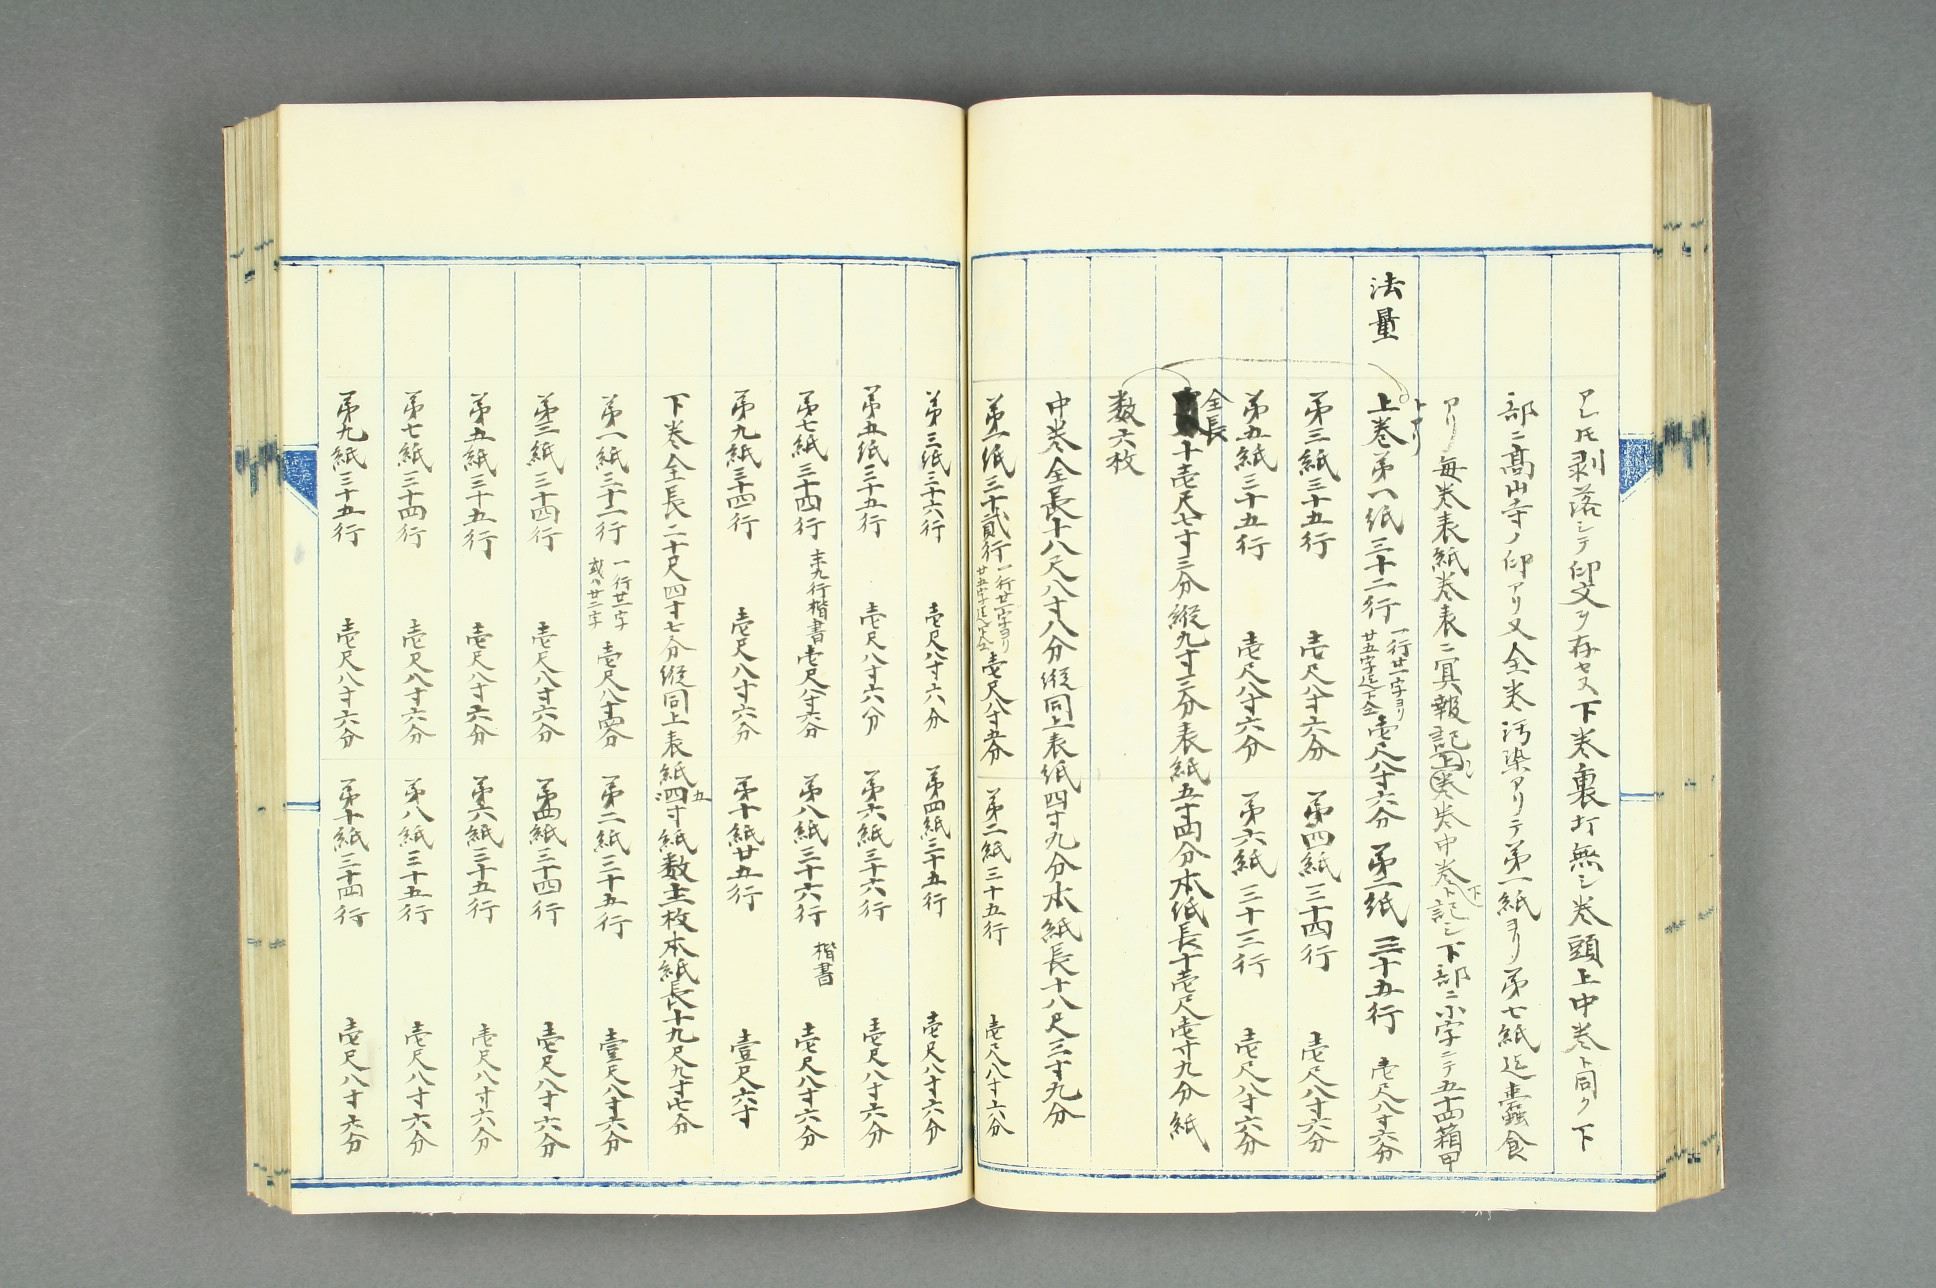 アレ𪜈剥落シテ印文ヲ存セス下巻裏打無シ巻頭上中巻ト同ク下
部ニ高山寺ノ印アリ又全巻汚染アリテ第一紙ヨリ第七紙迄蠧食
アリ毎巻表紙巻表ニ冥報記上巻巻中巻下ト記シ下部ニ小字ニテ五十四箱甲
トアリ
法量
上巻第一紙三十二行 一行廿一字ヨリ廿五字迄不全 壱尺八寸六分 第二紙三十五行 壱尺八寸六分
第三紙三十五行 壱尺八寸六分 第四紙三十四行 壱尺八寸六分
第五紙三十五行 壱尺八寸六分 第六紙三十三行 壱尺八寸六分
全長
十壱尺七寸三分縦九寸三分表紙五寸四分本紙長十壱尺壱寸九分紙
数六枚
中巻全長十八尺八寸八分縦同上表紙四寸九分本紙長十八尺三寸九分
第一紙三十貳行 一行廿一字ヨリ廿五字迄不全 壱尺八寸五分 第二紙三十五行 壱尺八寸六分
第三紙三十六行 壱尺八寸六分 第四紙三十五行 壱尺八寸六分
第五紙三十五行 壱尺八寸六分 第六紙三十六行 壱尺八寸六分
第七紙三十四行 末九行楷書 壱尺八寸六分 第八紙三十六行 楷書 壱尺八寸六分
第九紙三十四行 壱尺八寸六分 第十紙廿五行 壹尺六寸
下巻全長二十尺四寸七分縦同上表紙四寸五紙数十一枚本紙長十九尺九寸七分
第一紙三十一行 一行廿一字或ハ廿二字 壱尺八寸四分 第二紙三十五行 壹尺八寸六分
第三紙三十四行 壱尺八寸六分 第四紙三十四行 壱尺八寸六分
第五紙三十五行 壱尺八寸六分 第六紙三十五行 壱尺八寸六分
第七紙三十四行 壱尺八寸六分 第八紙三十五行 壱尺八寸六分
第九紙三十五行 壱尺八寸六分 第十紙三十四行 壱尺八寸六分